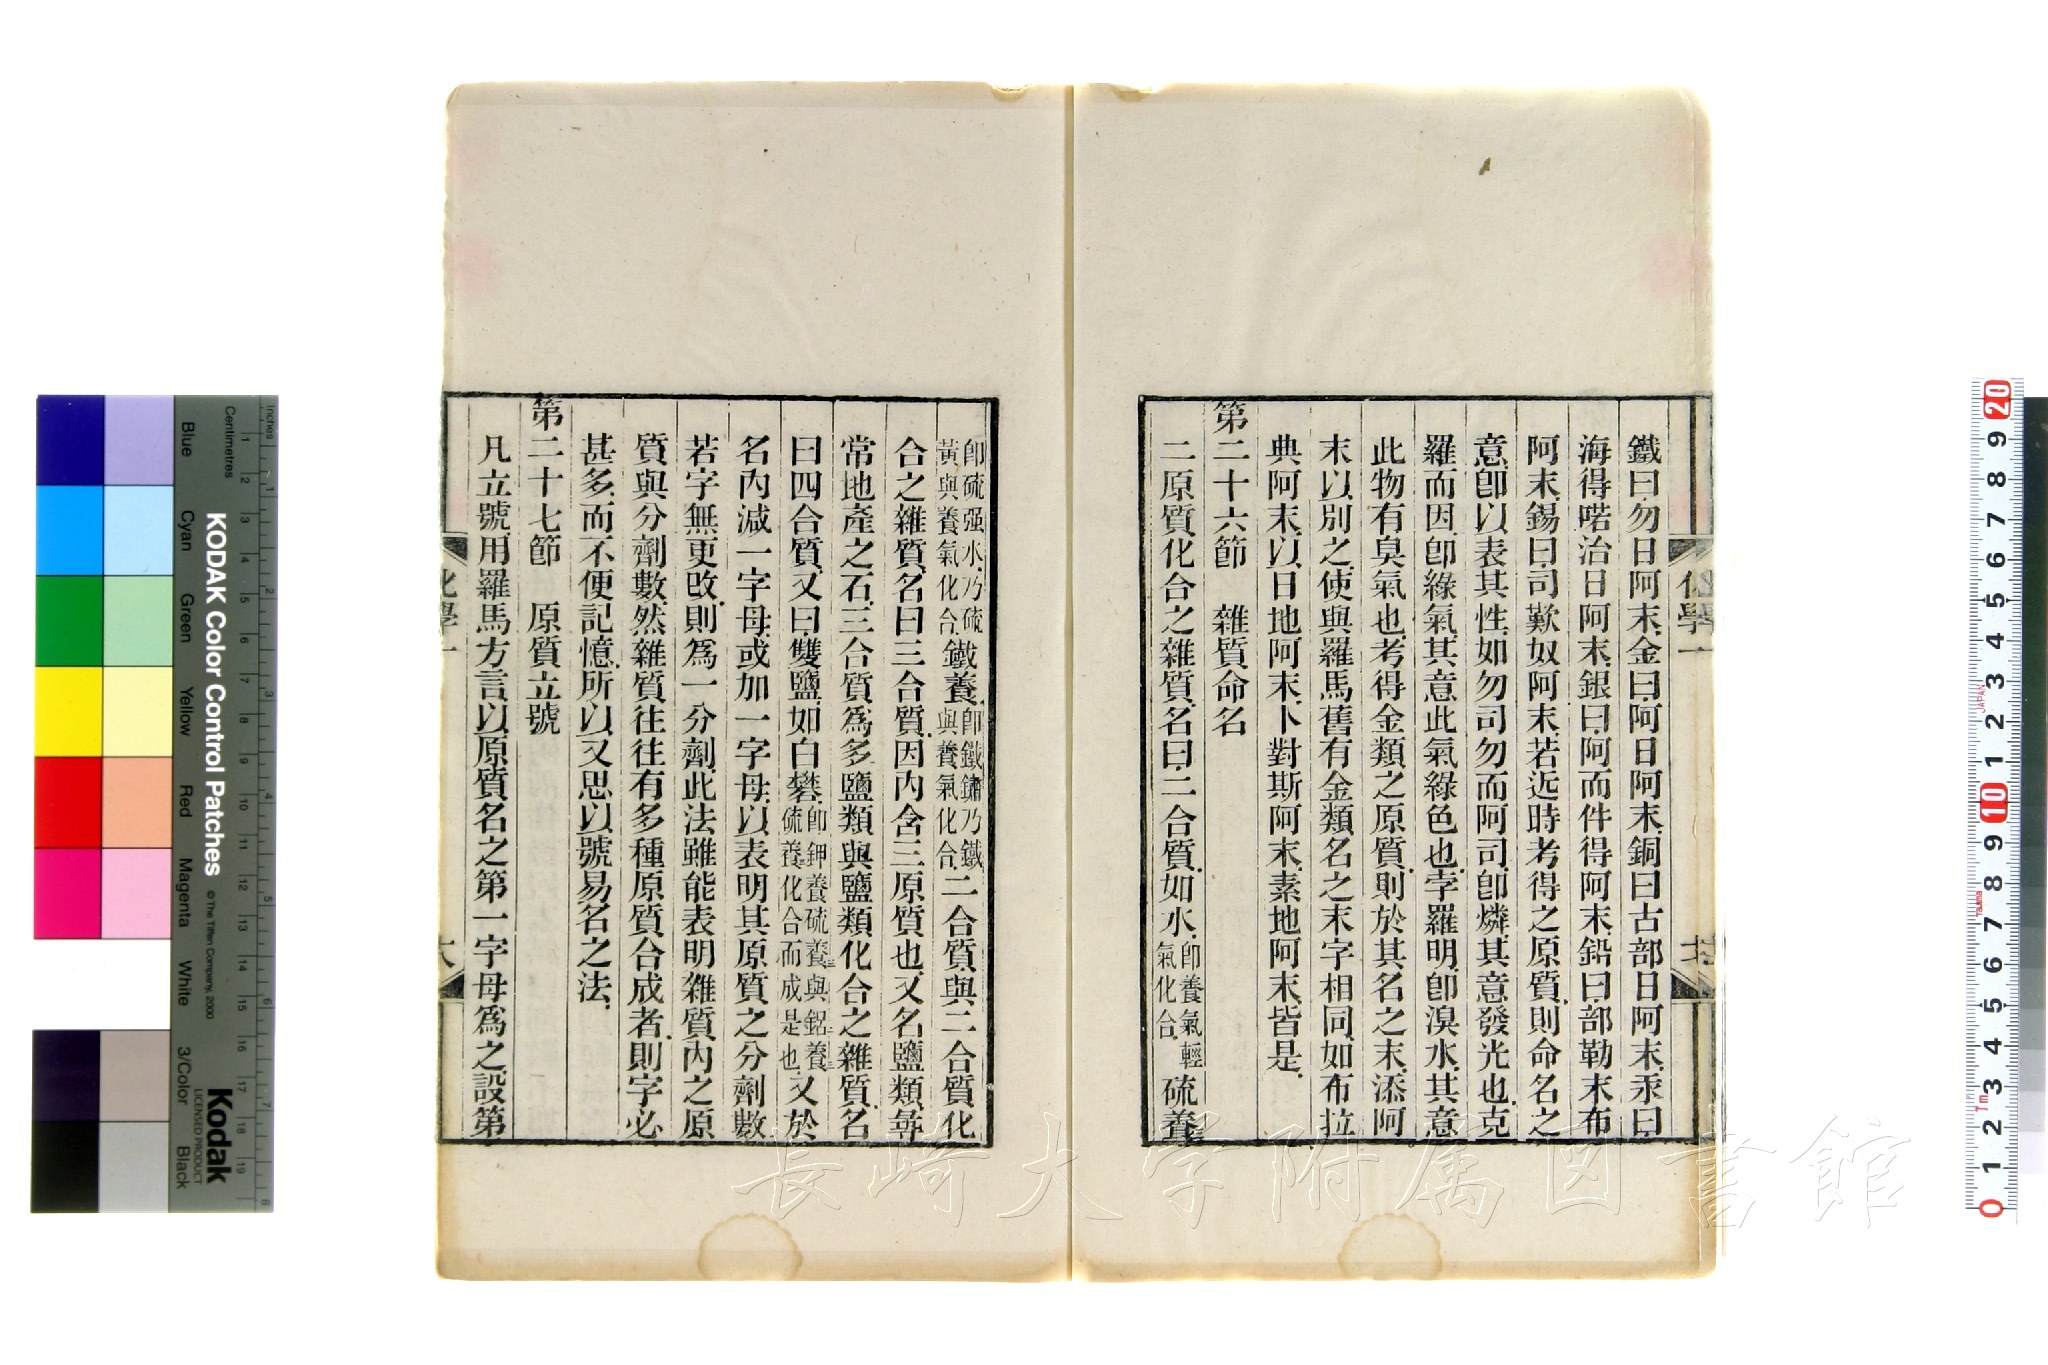 鐵曰勿日阿末金曰阿日阿末銅曰古部日阿末汞曰
海得喏治日阿末銀曰阿而件得阿末鉛曰部勒末布
阿末錫曰司歎奴阿末若近時考得之原質則命名之
意卽以表其性如勿司勿而阿司卽燐其意發光也克
羅而因卽綠氣其意此氣綠色也孛羅明卽溴水其意
此物有臭氣也考得金類之原質則於其名之末添阿
末以別之使與羅馬舊有金類名之末字相同如布拉
典阿末以日地阿末卜對斯阿末素地阿末皆是
第二十六節　雜質命名
二原質化合之雜質名曰二合質如水卽養氣輕氣化合硫養
卽硫强水乃硫黃與養氣化合鐵養卽鐵鏽乃鐵與養氣化合二合質與二合質化
合之雜質名曰三合質因內含三原質也又名鹽類尋
常地產之石三合質爲多鹽類與鹽類化合之雜質名
曰四合質又曰雙鹽如白礬卽鉀養硫養與鋁養硫養化合而成是也又於
名內減一字母或加一字母以表明其原質之分劑數
若字無更改則爲一分劑此法雖能表明雜質內之原
質與分劑數然雜質往往有多種原質合成者則字必
甚多而不便記憶所以又思以號易名之法
第二十七節　原質立號
凡立號用羅馬方言以原質名之第一字母爲之設第
化學一
化學一
KODAK Color Control Patches
© The Tiffen Company, 2000
Kodak
LICENSED PRODUCT
Inches
Centimetres
Blue
Cyan
Green
Yellow
Red
Magenta
White
3/Color
Black
JAPAN
長崎大学附属図書館